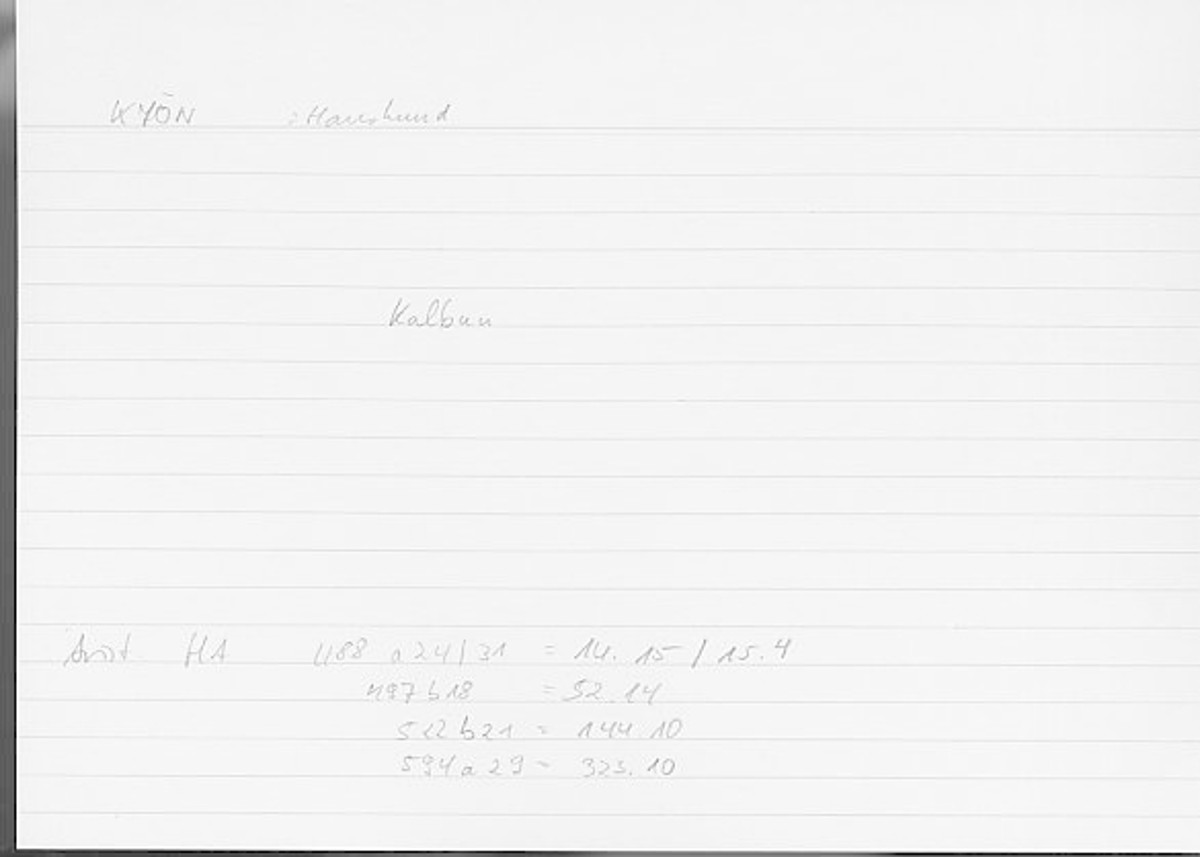 KYŌN : Haushund
Kalbun
Arist HA 488 a 24/31 = 14. 15 / 15.4
497 b 18 = 52.14
512 b 21 = 144.10
594 a 29 = 323.10